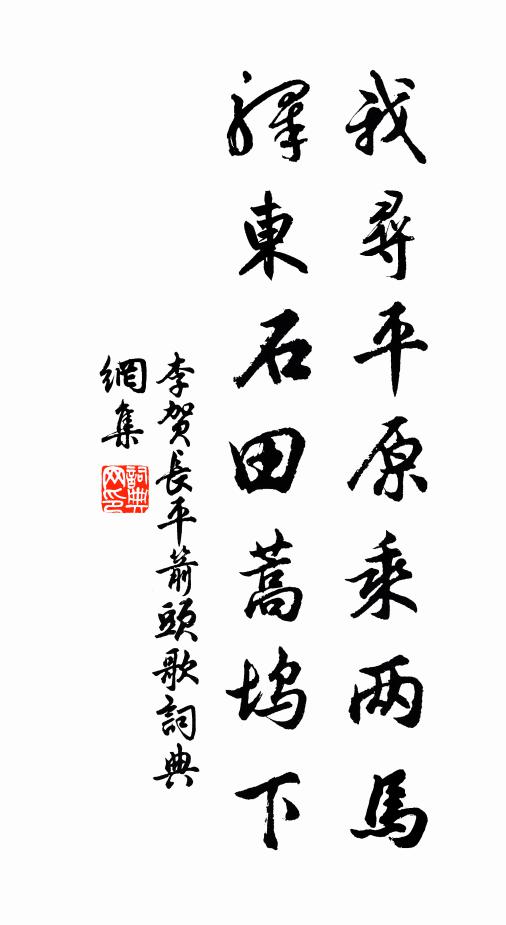 我尋平原乘两馬
驛東石田蒿塢下
李賀長平箭頭歌詞典
網集
詞典网印